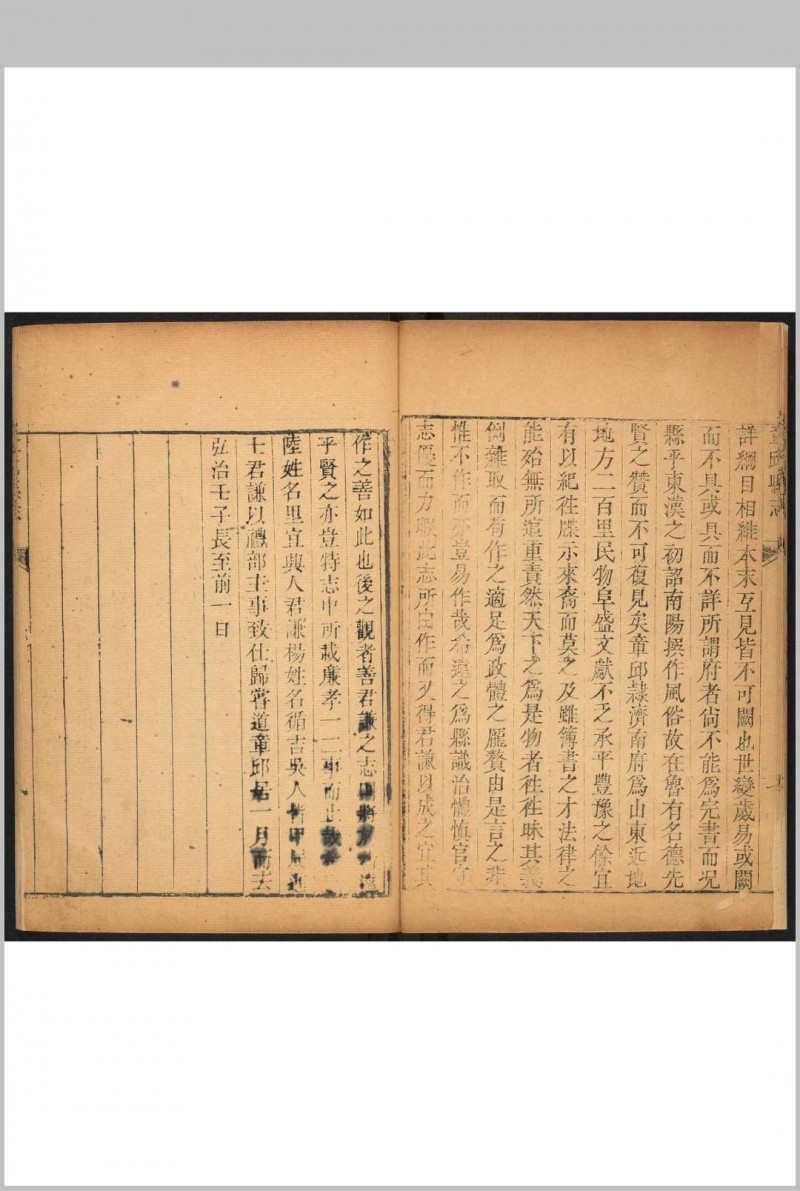 章邱縣志
詳綱目相維本末互見皆不可闕也世變歲易或闕
而不具或具而不詳所謂府者尚不能爲完書而况
縣乎東漢之初詔南陽撰作風俗故在魯有名德先
賢之贊而不可復見矣章邱隷濟南府爲山東近地
地方二百里民物阜盛文獻不乏承平豐豫之餘宜
有以紀徃牒示來裔而莫之及雖簿書之才法律之
能殆無所逭重責然天下之爲是物者徃徃昧其義
例雜取而有作之適足爲政體之龎贅由是言之非
惟不作而亦豈易作哉希達之爲縣識治體慎官守
志優而力暇此志所由作而又得君謙以成之宜其
作之善如此也後之觀者善君謙之志
乎賢之亦豈特志中所載廉孝一二事而止哉希
陸姓名里宜興人君謙楊姓名循吉吳人皆甲辰進
士君謙以禮部主事致仕歸嘗道章邱居一月而去
弘治壬子長至前一日